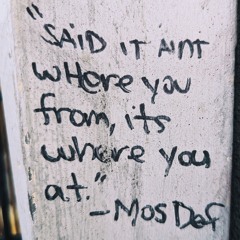 "SAiD iT AiNT
wHere you
from, its
where you
at."
-Mos Def